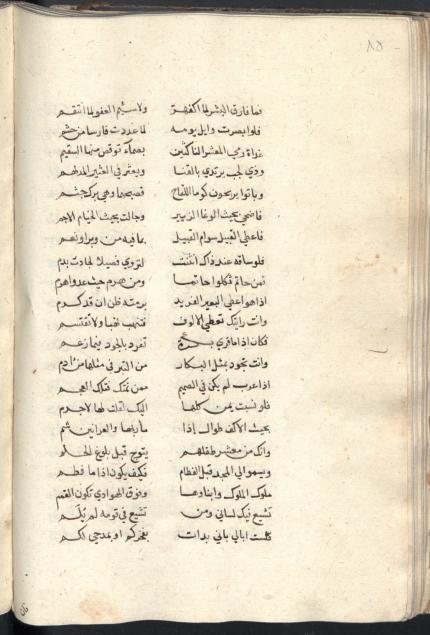 ٨٥
فما فارق البشر لما اكفهر ولا سئم العفو لما انتقم
فلو ابصرت وايل يومه لما عددت فارسا من جشم
غداة رمى المعشر الناكثين بصماء توقص منها السقيم
وذي لجب يرتدي بالقنا ويعثر في العثير المدلهم
وباتوا يرجون كوم اللقاح فصبحها وهي برك جثم
فاضحى بحيث الوغا الزيير وجالت بحيث الخيام الاجم
فاعطى القبيل سوام القبيل بما فيه من
فلو ساقه عند ذاك انثنت لتروي فصيلا لجادت بدم
فمن حاتم ثكلوا حاتما ومن هرم حيث عدوا هرم
اذا هو اعطى البعير الفريد برمته ظن ان قد كرم
وانت رايتك تعطي الالوف فتنهب نهبا ولا تقتسم
فكان اذا ما قرى بكرة تفرد بالجود فيما زعم
وانت تجود بمثل البكار من التبر في مثلها من ادم
اذا عرب لم يكن في الصميم ممن نمتك فتلك العجم
فلو نسبت يمن كلها اليك لقلت لها لا جرم
بحيث الاكف طوال اذا ما ربها والعرانين شم
وانك من معشر طفلهم يتوج قبل بلوغ الحلم
ويسموا الى المجد قبل الفطام فكيف يكون اذا ما فطم
ملوك الملوك وابناوها وفوق الهوادي تكون القمم
تشيع فيك لساني ومن تشيع في قومه لم يلم
فلست ابالي باي بدات بفخركم او بمدحي لكم
فان